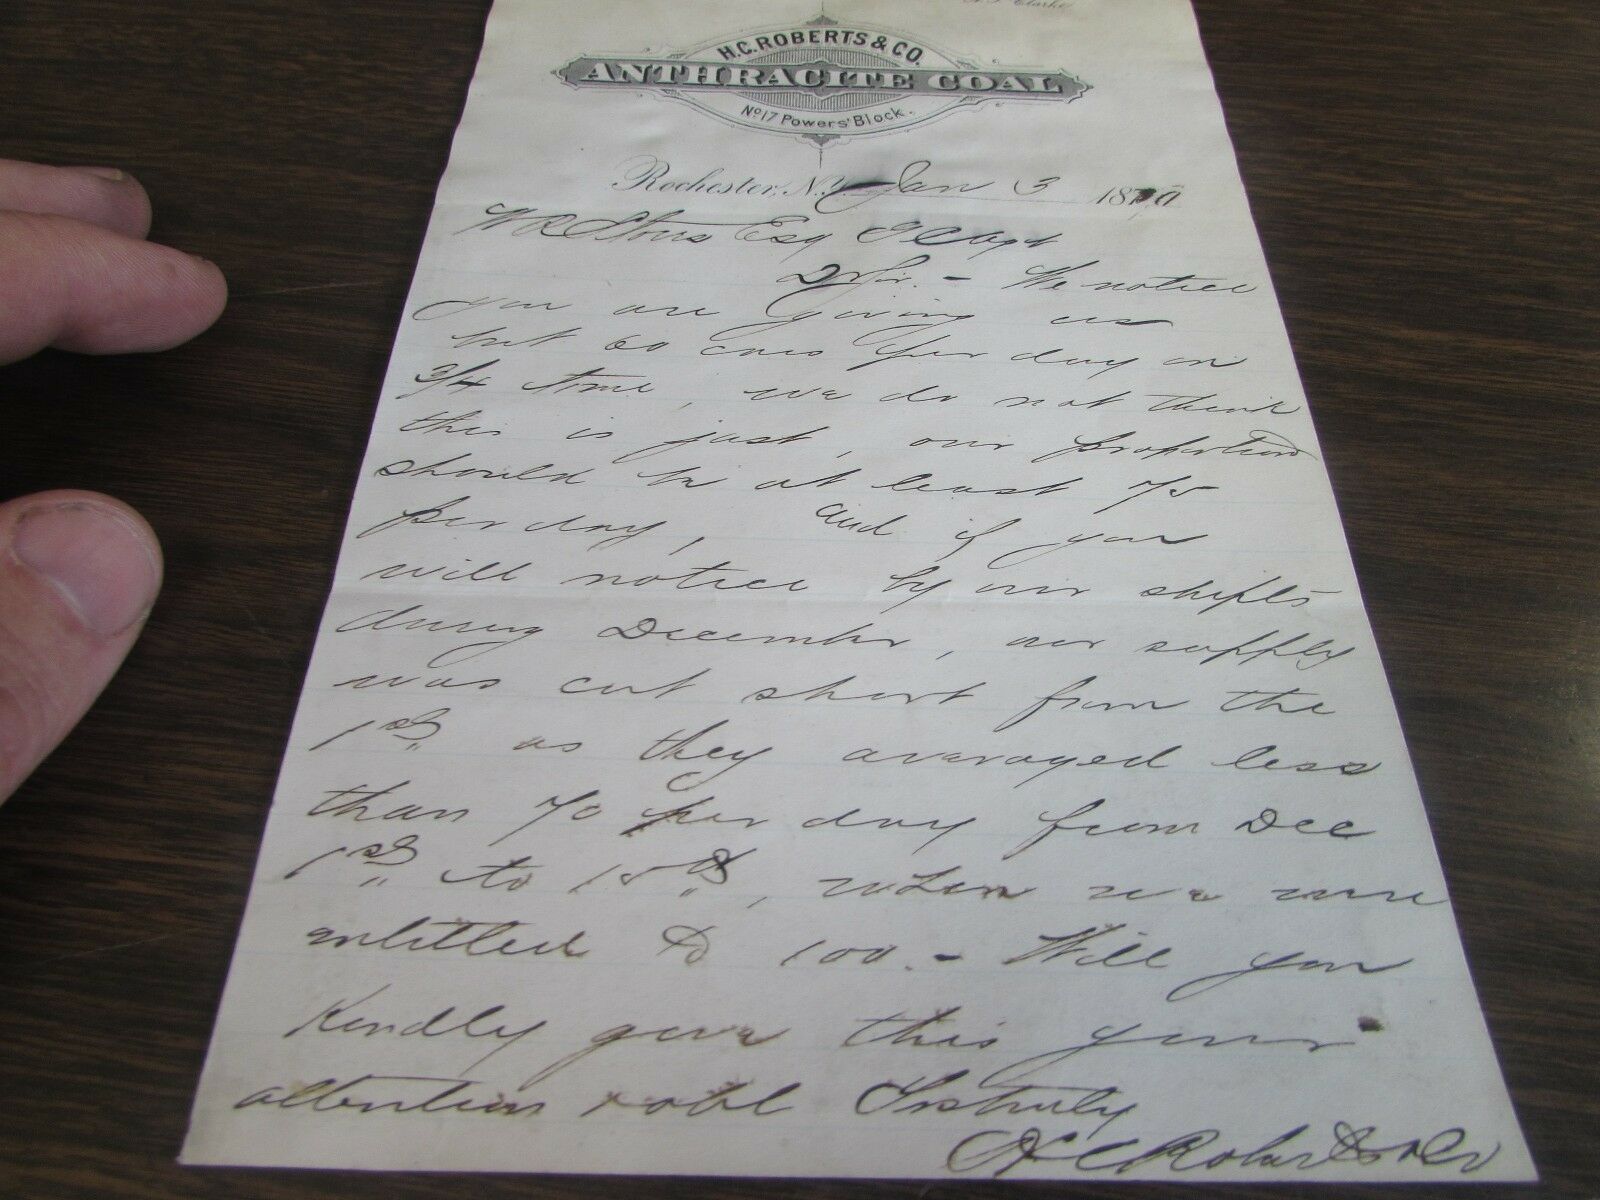 H.C. ROBERTS & CO.
ANTHRACITE COAL
No 17 Powers' Block.
Rochester, N.Y. Jan 3 18
Esq
Dr Sir. - We notice
you are giving us
but 60 cars per day on
3/4 time, we do not think
this is just, our proportion
should be at least 75
per day, and if you
will notice by our shipts
during December, our supply
was cut short from the
1st as they averaged less
than 70 per day from Dec
1st to 15th, when we were
entitled to 100. - Will you
Kindly give this your
attention & obl Yrs truly
H C Roberts & Co